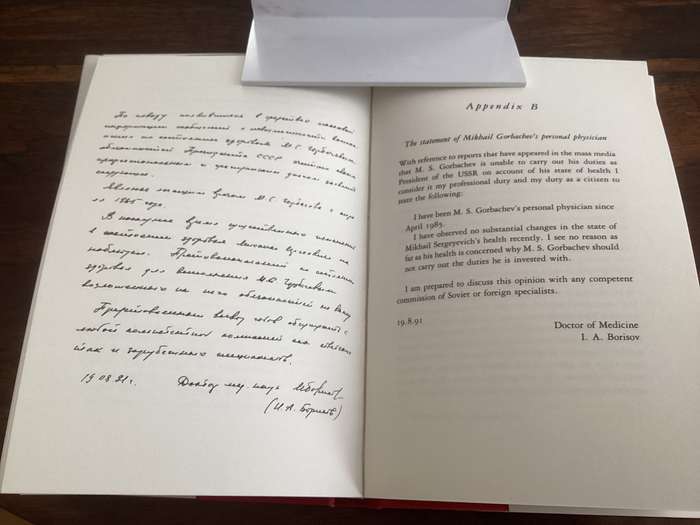 По поводу появившихся в средствах массовой
информации сообщений о невыполнении
по состоянию здоровья М.С. Горбачевым
обязанностей Президента СССР считаю своим
профессиональным и гражданским долгом заявить
следующее.
Являюсь личным врачом М.С. Горбачева с апреля
1985 года.
В последнее время существенных изменений
в состоянии здоровья Михаила Сергеевича не
наблюдал. Противопоказаний по состоянию
здоровья для выполнения М.С. Горбачевым
возложенных на него обязанностей не вижу.
готов обсудить с
любой компетентной комиссией как советских
так и зарубежных специалистов.
19.08.91г. Доктор мед. наук
(И.А. Борисов)
Appendix B
The statement of Mikhail Gorbachev's personal physician
With reference to reports that have appeared in the mass media
that M. S. Gorbachev is unable to carry out his duties as
President of the USSR on account of his state of health I
consider it my professional duty and my duty as a citizen to
state the following:
I have been M. S. Gorbachev's personal physician since
April 1985.
I have observed no substantial changes in the state of
Mikhail Sergeyevich's health recently. I see no reason as
far as his health is concerned why M. S. Gorbachev should
not carry out the duties he is invested with.
I am prepared to discuss this opinion with any competent
commission of Soviet or foreign specialists.
19.8.91
Doctor of Medicine
I. A. Borisov